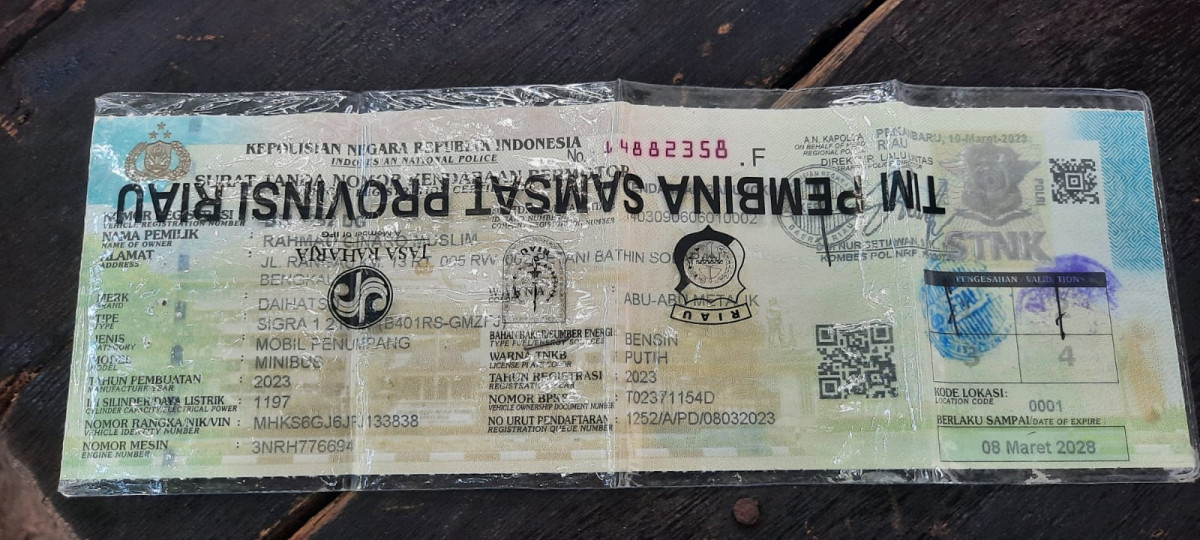 KEPOLISIAN NEGARA REPUBLIK INDONESIA
INDONESIAN NATIONAL POLICE
No. 14882358 .F
SURAT TANDA NOMOR KENDARAAN BERMOTOR
TIM PEMBINA SAMSAT PROVINSI RIAU
A.N. KAPOLDA RIAU
ON BEHALF OF
PEKANBARU, 10-Maret-2023
DIREKTUR LALU LINTAS
POLRI
STNK
KOMBES POL NRP.
NOMOR REGISTRASI
VEHICLE REGISTRATION NUMBER
1403090606010002
NAMA PEMILIK : MUSLIM
NAME OF OWNER
ALAMAT : JL 005 RW BATHIN
ADDRESS
JASA RAHARJA
A Member of IFG
RIAU
MERK : DAIHATSU
BRAND
ABU-ABU METALIK
TIPE : SIGRA 1.2
TYPE
JENIS : MOBIL PENUMPANG
CATEGORY
MODEL : MINIBUS
MODEL
TAHUN PEMBUATAN : 2023
MANUFACTURE YEAR
ISI SILINDER/DAYA LISTRIK : 1197
CYLINDER CAPACITY/ELECTRICAL POWER
NOMOR RANGKA/NIK/VIN : MHKS6GJ6JPJ133838
VEHICLE IDENTITY NUMBER
NOMOR MESIN : 3NRH776694
ENGINE NUMBER
BAHAN BAKAR/SUMBER ENERGI : BENSIN
TYPE FUEL/ENERGY SOURCES
WARNA TNKB : PUTIH
LICENSE PLATE COLOR
TAHUN REGISTRASI : 2023
REGISTRATION YEAR
NOMOR BPKB : T02371154D
VEHICLE OWNERSHIP DOCUMENT NUMBER
NO URUT PENDAFTARAN : 1252/A/PD/08032023
REGISTRATION QUEUE NUMBER
PENGESAHAN VALIDATIONS
4
KODE LOKASI: 0001
LOCATION CODE
BERLAKU SAMPAI/DATE OF EXPIRE :
08 Maret 2028